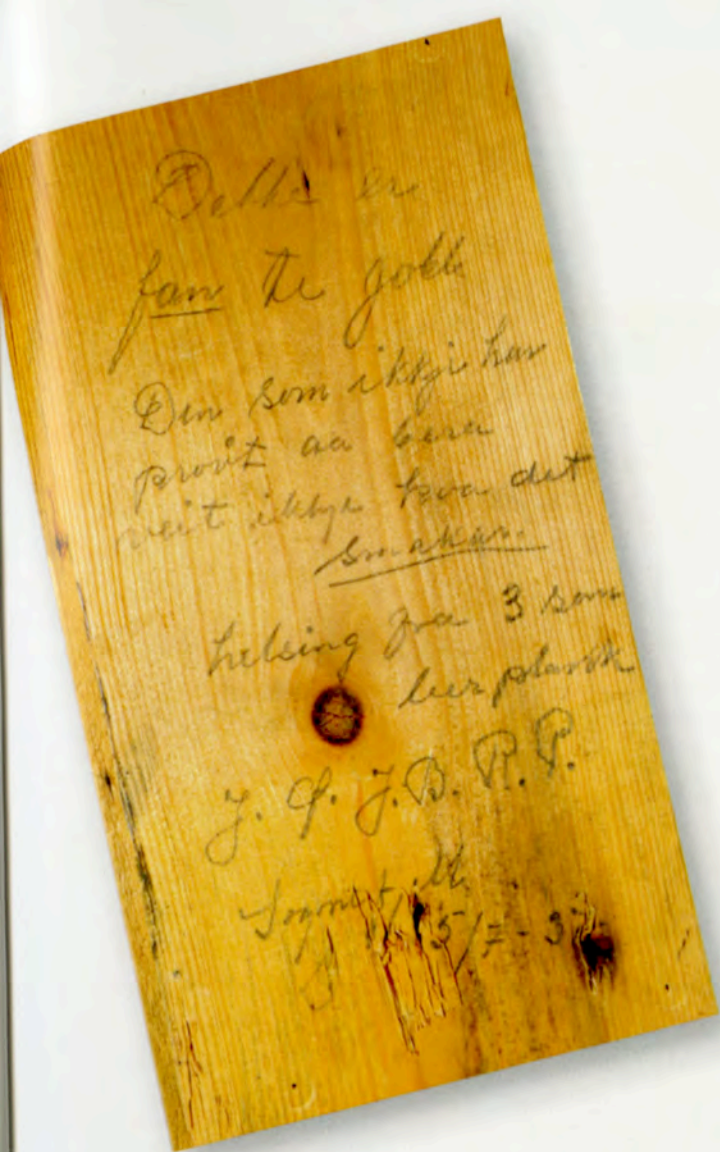 Dette er
fan te jobb
Den som ikkje har
prøvt aa bera
veit ikkje kva det
smakar.
helsing fra 3 som
ber plank
J. J.B. P.P.
5/= - 3